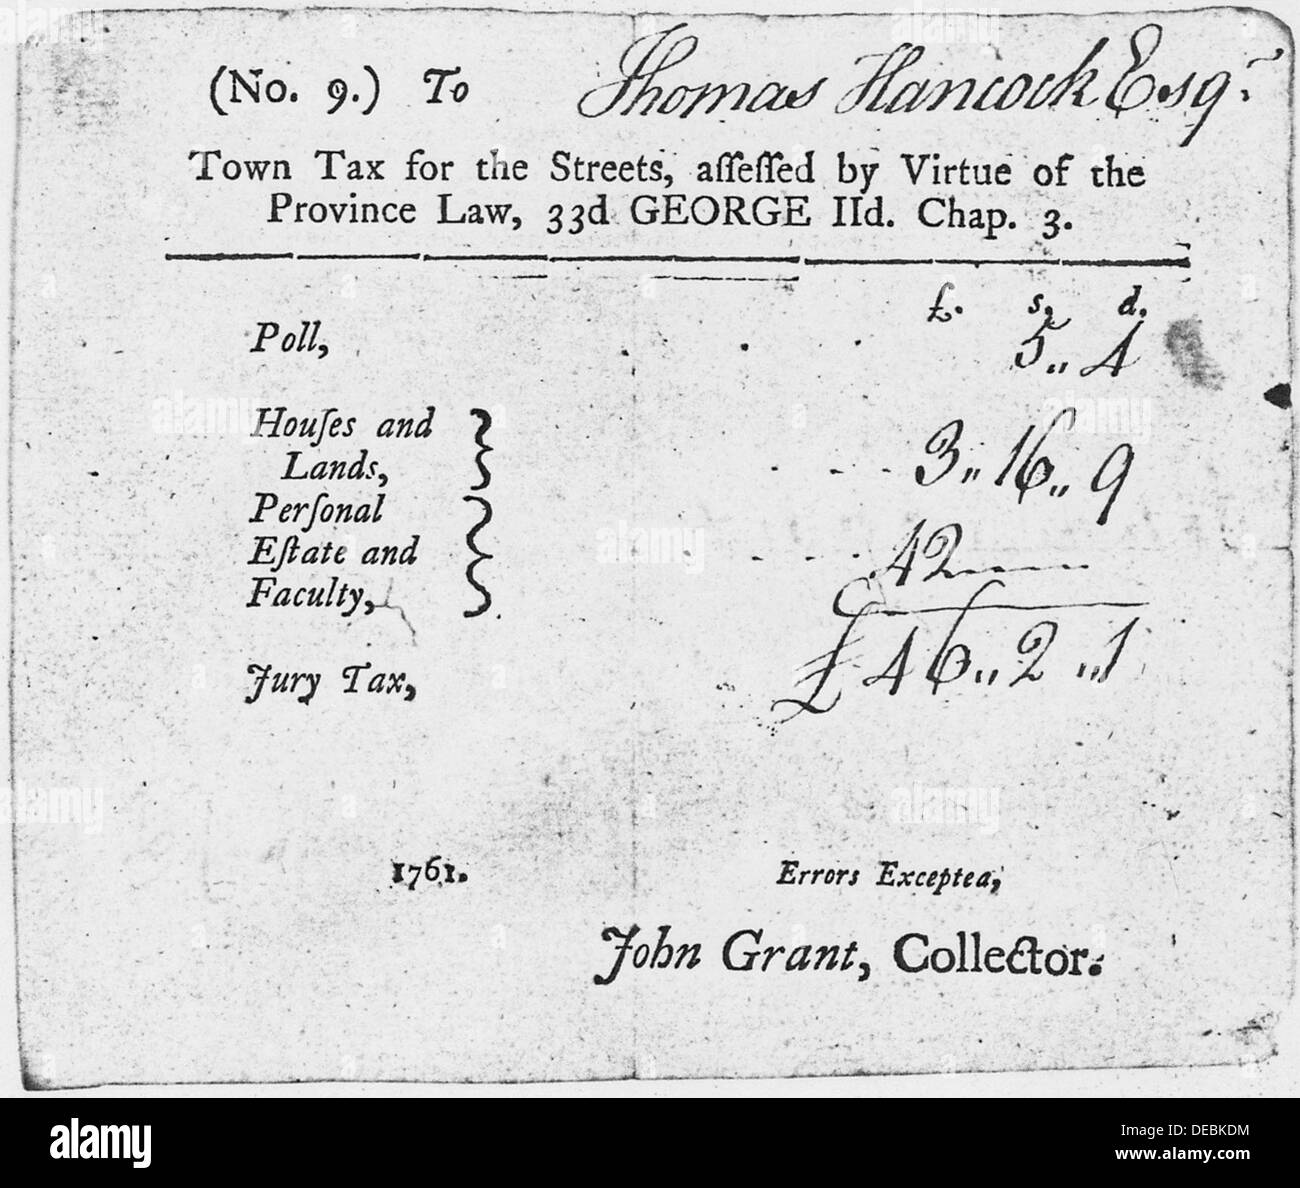 (No. 9.) To Thomas Hancock Esqr.
Town Tax for the Streets, aſſeſſed by Virtue of the
Province Law, 33d GEORGE IId. Chap. 3.
£. s. d.
Poll, 5,, 4
Houſes and
Lands, 3,, 16,, 9
Perſonal
Eſtate and 42
Faculty,
£ 46,, 2,, 1
Jury Tax,
1761. Errors Excepted,
John Grant, Collector.
alamy
Image ID: DEBKDM
www.alamy.com